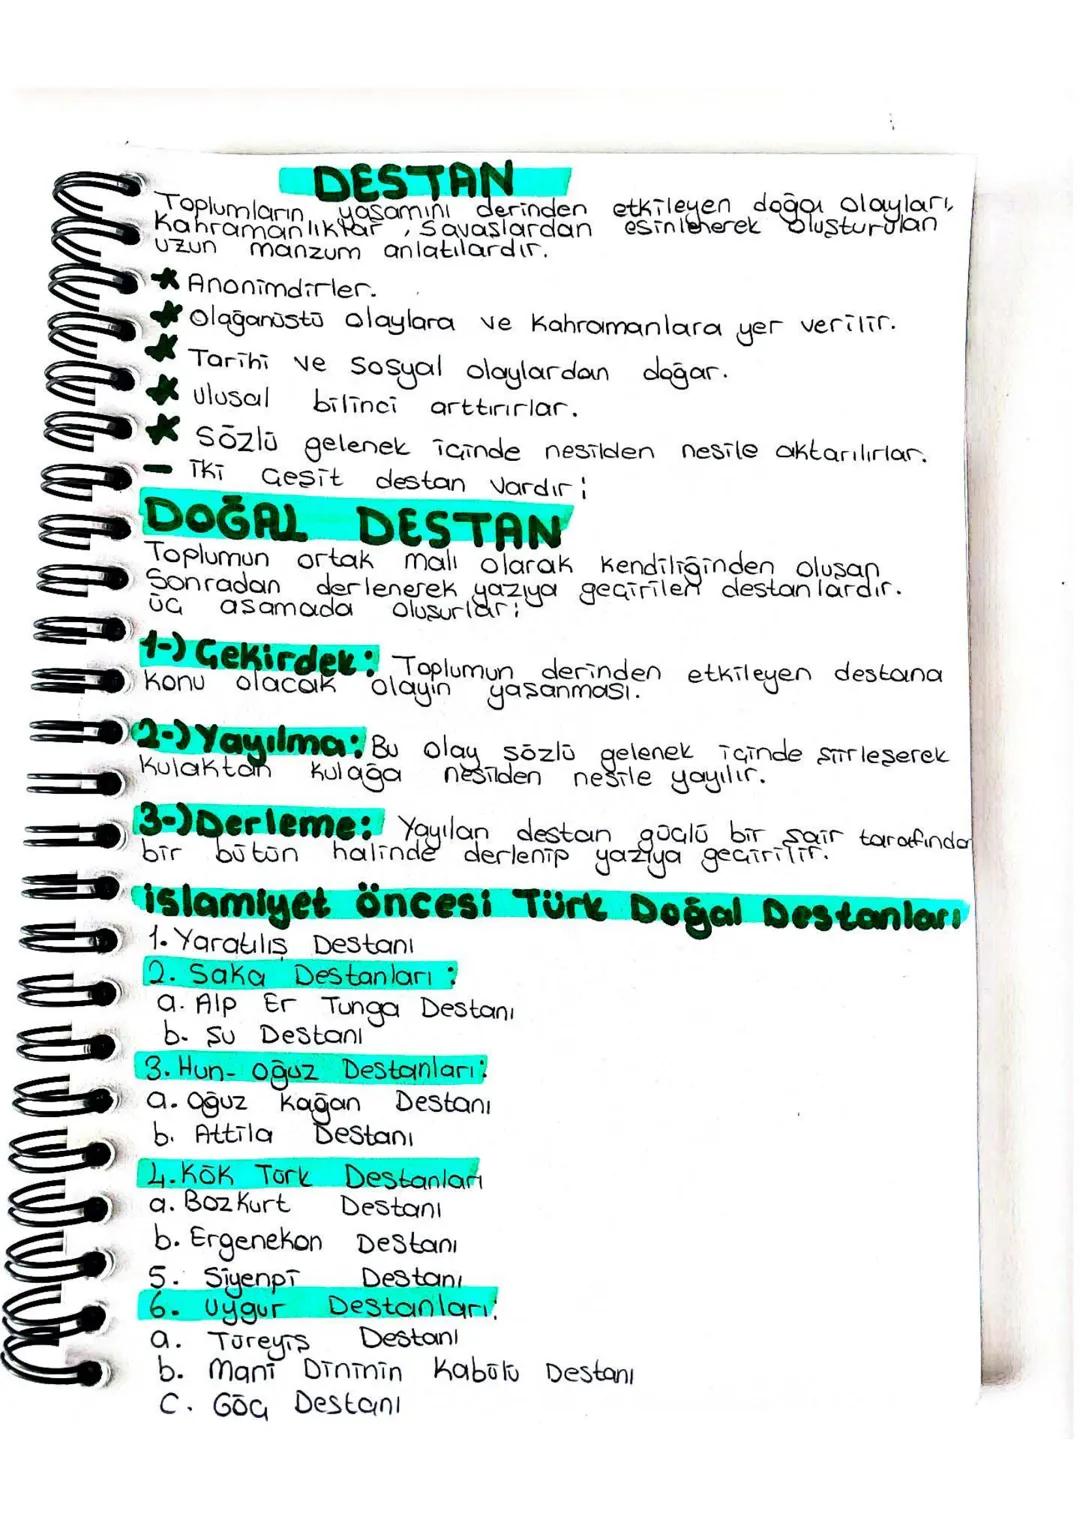 DESTAN
Toplumların yaşamını derinden etkileyen doğa olayları,
kahramanlıklar, savaşlardan esinlenerek oluşturulan
uzun manzum anlatılardır.
* Anonimdirler.
* Olağanüstü olaylara ve kahramanlara yer verilir.
* Tarihi ve sosyal olaylardan doğar.
* Ulusal bilinci arttırırlar.
* Sözlü gelenek içinde nesilden nesile aktarılırlar.
- İki çeşit destan vardır;
DOĞAL DESTAN
Toplumun ortak malı olarak kendiliğinden oluşan
sonradan derlenerek yazıya geçirilen destanlardır.
Üç aşamada oluşurlar;
1-) Çekirdek: Toplumun derinden etkileyen destana
konu olacak olayın yaşanması.
2-) Yayılma: Bu olay sözlü gelenek içinde şiirleşerek
kulaktan kulağa nesilden nesile yayılır.
3-) Derleme: Yayılan destan güçlü bir şair tarafında
bir bütün halinde derlenip yazıya geçirilir.
islamiyet öncesi Türk Doğal Destanları
1. Yaratılış Destanı
2. Saka Destanları:
a. Alp Er Tunga Destanı
b. Şu Destanı
3. Hun- Oğuz Destanları:
a. Oğuz Kağan Destanı
b. Attila Destanı
4. Kök Türk Destanları
a. Bozkurt Destanı
b. Ergenekon Destanı
5. Siyenpi Destanı
6. Uygur Destanları:
a. Türeyiş Destanı
b. Mani Dininin Kabülü Destanı
C. Göç Destanı